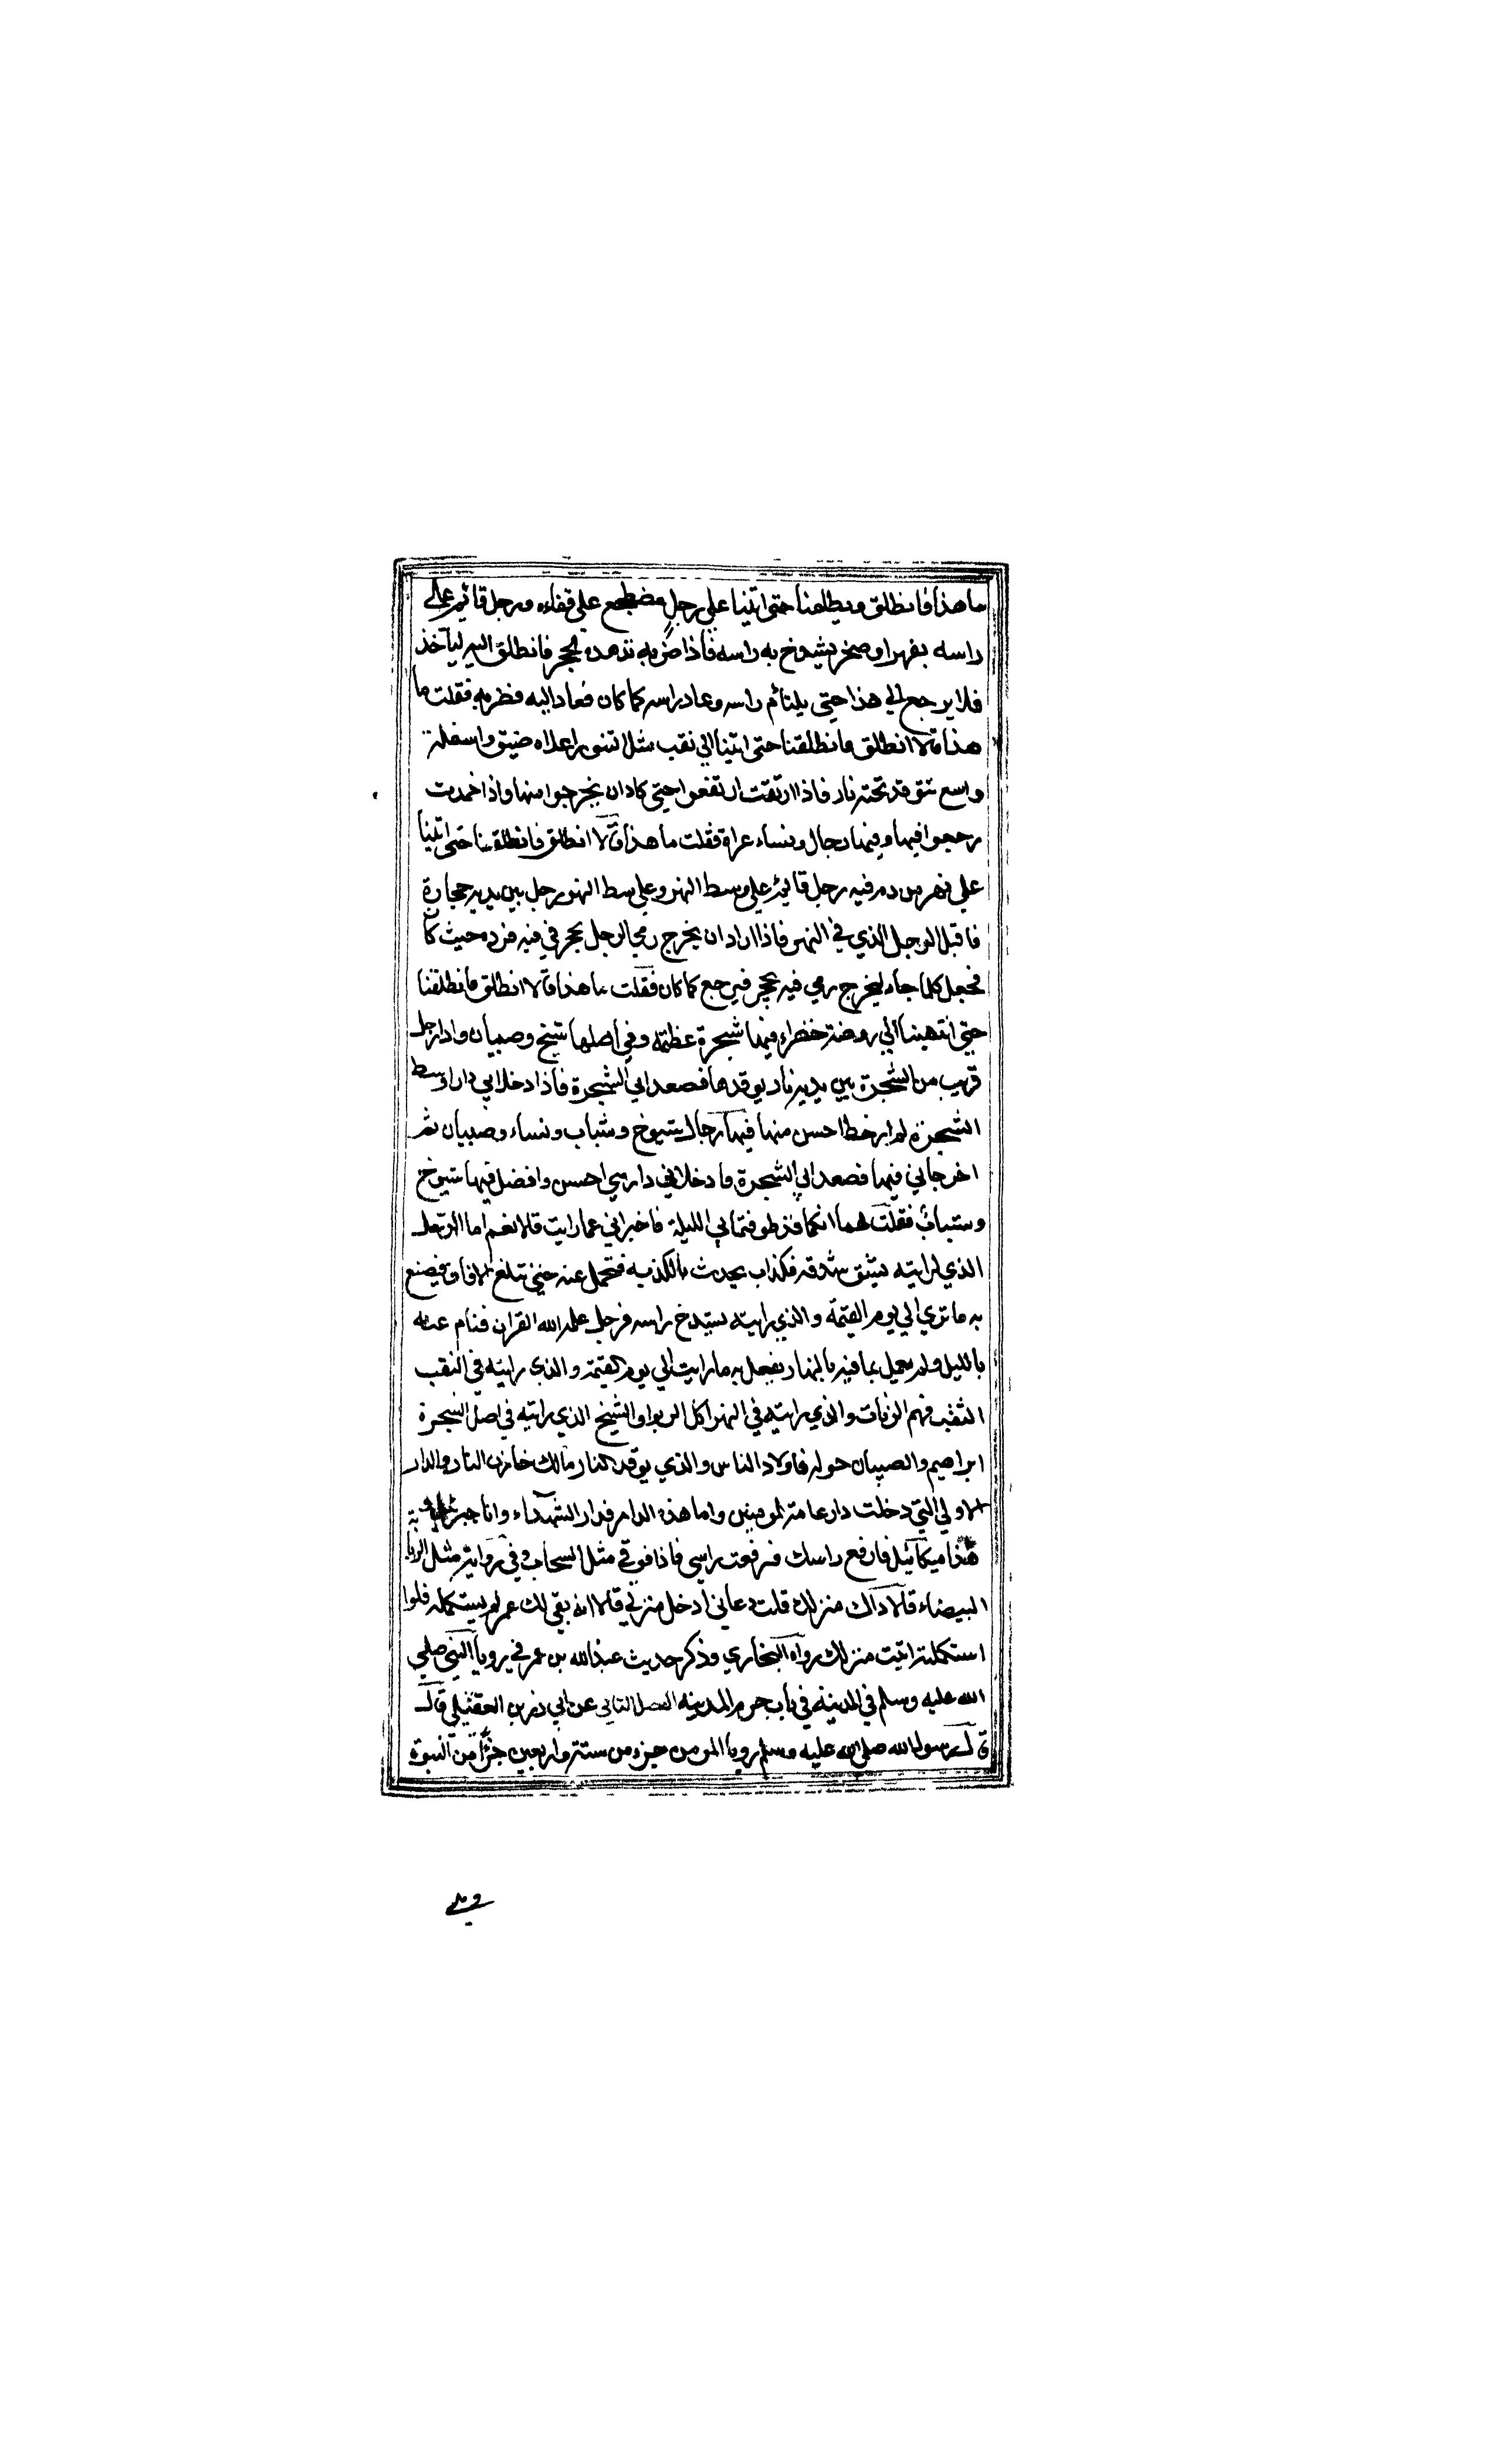 ما هذا فانطلق ويطلعنا حتى اتينا علي رجل مضطجع علي قفاءه ورجل قائم علي
راسه بفهر او صخر يشدخ به راسه فاذا ضربه تدهده الحجر فانطلق اليه ليأخذ
فلا يرجع الي هذا حتي يلتام راسه وعاد راسه كما كان فعاد اليه فضربه فقلت ما
هذا قالا انطلق فانطلقنا حتى اتينا الي نقب مثل التنور اعلاه ضيق واسفله
واسع تتوقد تحته نار فاذا ارتقت ارتفعوا حتي كاد ان يخرجوا منها واذا خمدت
رجعوا فيها وفيها رجال ونساء عراة فقلت ما هذا قالا انطلق فانطلقنا حتى اتينا
علي نهر من دم فيه رجل قائم علي وسط النهر وعلي سط النهر رجل بين يديه حجارة
فاقبل الرجل الذي في النهر فاذا اراد ان يخرج رمي الرجل بحجر في فيه فرده حيث كا
فجعل كلما جاء ليخرج رمي فيه بحجر فيرجع كما كان فقلت ما هذا قالا انطلق فانطلقنا
حتي انتهينا الي روضة خضراء فيها شجرة عظمة وفي اصلها شيخ وصبيان واذا رجل
قريب من الشجرة بين يديه نار يوقدها فصعد ابي الشجرة فاذا دخلاني دار اوسط
الشجرة لم ار خطا احسن منها فيها رجال شيوخ وشباب ونساء وصبيان ثم
اخرجاني فيها فصعد ابي الشجرة فادخلاني دار هي احسن وافضل فيها شيوخ
وشباب فقلت لهما انكما قد طوفتماني الليلة فاخبراني عما رايت قالا نعم اما الرجل
الذي رايته يشق شدقه فكذاب يحدث بالكذبه فتحمل عنه حتي تبلغ الافاق فيصنع
به ما تري الي يوم القيمة والذي رايته يشدخ راسه فرجل علمه الله القران فنام عنه
بالليل ولم يعمل بما فيه بالنهار يفعل به ما رايت الي يوم القيمة والذي رايته في النقب
الثقب فهم الزناة والذي رايته في النهر اكل الربوا والشيخ الذي رايته في اصل الشجرة
ابراهيم والصبيان حوله فاولاد الناس والذي يوقد النار مالك خازن النار والدار
الاولي التي دخلت دار عامة المومنين واما هذه الدار فدار الشهداء وانا جبرئيل
هذا ميكائيل فارفع راسك فرفعت راسي فاذا فوقي مثل السحاب وفي رواية مثل الربابة
البيضاء قالا ذاك منزلك قلت دعاني ادخل منزلي قالا انه بقي لك عمر لم يستكمله فلوا
استكملته اتيت منزلك رواه البخاري وذكر حديث عبد الله بن عمر في رويا النبي صلي
الله عليه وسلم في المدينة في باب حرم المدينه الفصل الثاني عن ابي رزين العقيلي قال
قال رسول الله صلي الله عليه وسلم رويا المومن جزء من ستة واربعين جزًا من النبوة